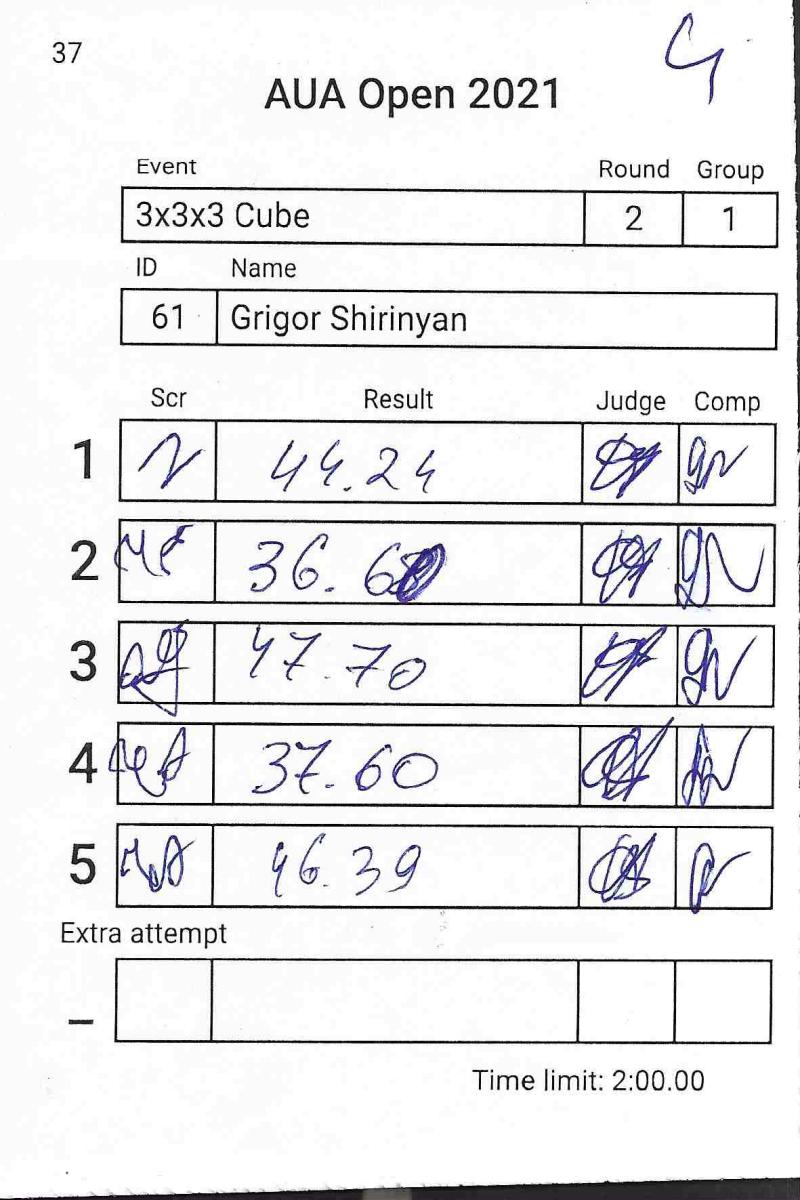 37
AUA Open 2021
Event Round Group
3x3x3 Cube 2 1
ID Name
61 Grigor Shirinyan
Scr Result Judge Comp
1 44.24
2
3 47.70
4 37.60
5 46.39
Extra attempt
_
Time limit: 2:00.00